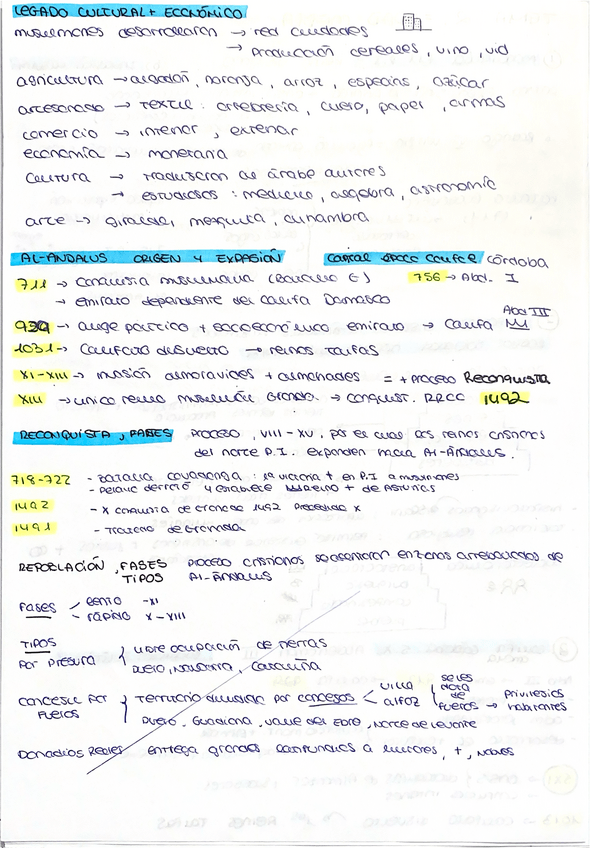 LEGADO CULTURAL + ECONÓMICO
musulmanes desarrollaron → red ciudades
→ producción cereales, vino, vid
agricultura → algodón, naranja, arroz, especias, azúcar
artesanado → TEXTIL: orfebrería, cuero, papel, armas
comercio → interior, exterior
economía → monetaria
Cultura → traducían al árabe autores
→ estudiosos: medicina, algebra, astronomía
arte → giralda, mezquita, alhambra
AL-ÁNDALUS ORIGEN Y EXPASIÓN
capital córdoba
711 → conquista musulmana
756 → Abd. I
→ emirato dependiente del califa Damasco
→ auge político + socioeconómico emirato → Califa Abd III
1031 → Califato disuelto → reinos taifas
XI-XIII → invasión almoravides + almohades = + proceso Reconquista
XIII → unico reino musulmán Granada → conquist. RRCC 1492
RECONQUISTA, FASES PROCESO, VIII-XV, por el cual los reinos cristianos
del norte P.I. expanden hacia Al-Ándalus.
718-722 - Batalla covadonga: 1ª victoria + en P.I a musulmanes
- Pelayo derrotó y establece reino + de Asturias
1492 - x conquista de Granada 1492
1491 - Tratado de Granada
REPOBLACIÓN, FASES TIPOS proceso cristianos se asientan en zonas arrebatadas de
AL-ÁNDALUS
FASES lento -XI
- rápido X-XIII
TIPOS
POR PRESURA } Libre ocupación de tierras
Duero, Cataluña
CONCEJIL POR FUEROS } Territorio dividido por concejos < villa alfoz { se les dota de fueros → privilegios habitantes
Duero, Guadiana, valle del Ebro, norte de levante
Donadíos Reales entrega grandes latifundios a militares, +, nobles